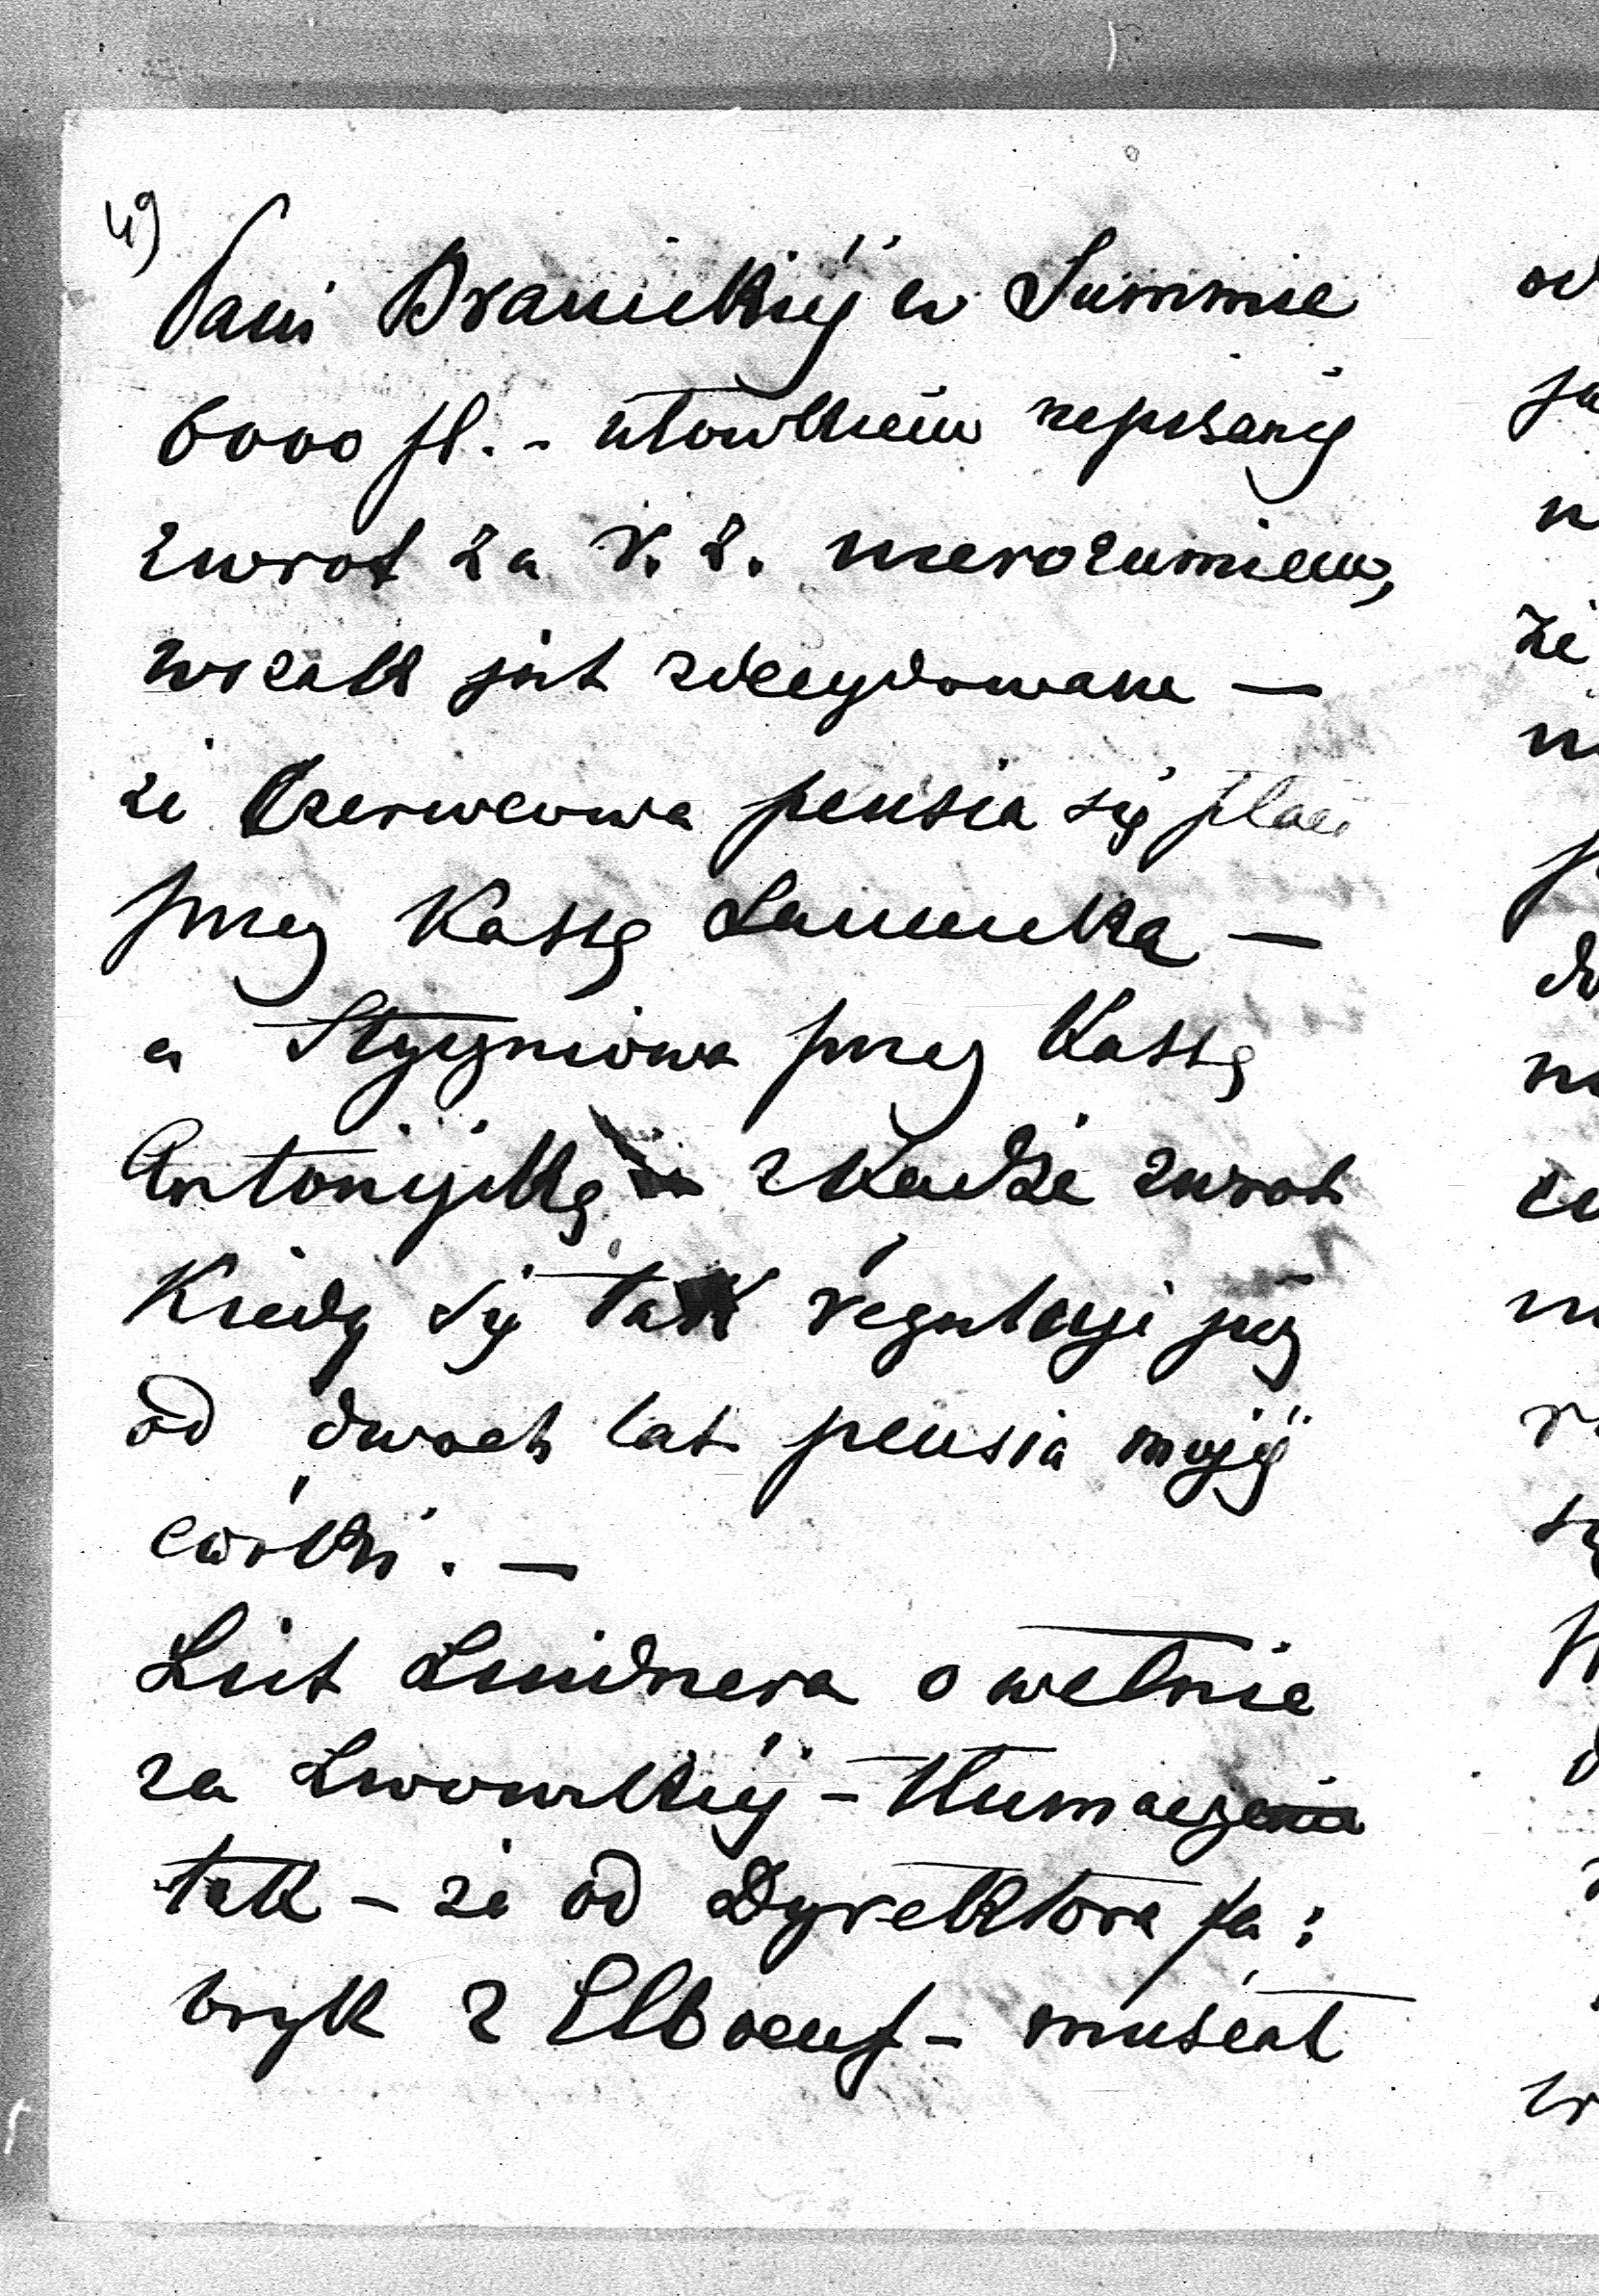 4)
Pani Branickiéj w Summie
6000 fl. - ołówkiem napisany
zwrot za r. z. nierozumiem,
wszak jest zdecydowane —
że Czerwcowa pensia się płaci
przez Kassę Łańcucka —
a Styczniowa przez Kassę
Antonijską zkadże zwrot
Kiedy się tak reguluje już
od dwóch lat pensia mojéj
córki. —
List Lindnera o wełnie
za Lwowskiéj - tłumaczenia
tak - że od Dyrektora fa:
bryk z Elboeuf - musiał